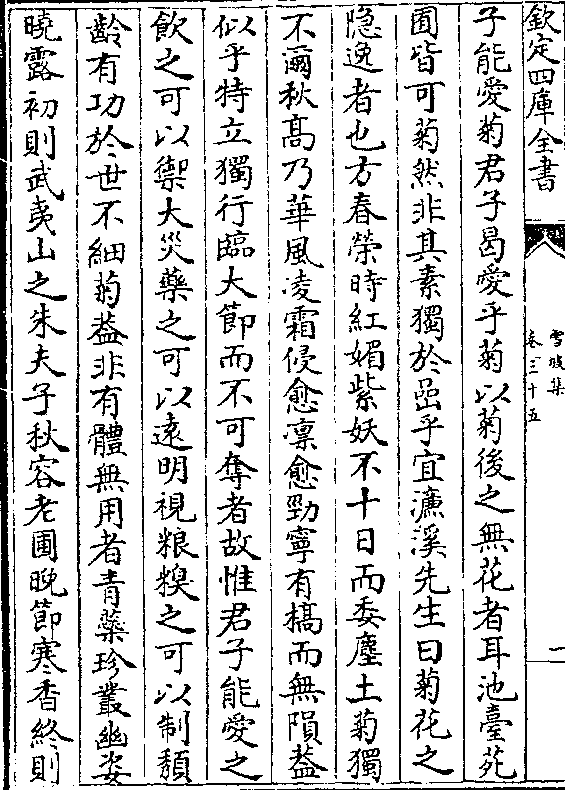 欽定四庫全書
雪坡集
卷三十五
一
子能愛菊君子曷愛乎菊以菊後之無花者耳池臺苑
囿皆可菊然非其素獨於嵒乎宜濂溪先生曰菊花之
隐逸者也方春榮時紅媚紫妖不十日而委塵土菊獨
不爾秋髙乃華風凌霜侵愈凛愈勁寧有槁而無隕葢
似乎特立獨行臨大節而不可奪者故惟君子能愛之
飲之可以禦大災藥之可以遠明視粮糗之可以制頽
齡有功於世不細菊葢非有體無用者青藥珍叢幽姿
曉露初則武夷山之朱夫子秋容老圃晚節寒香終則